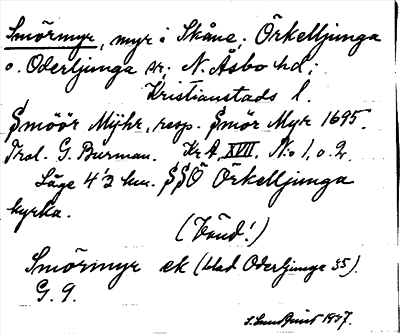 Smörmyr, myr i Skåne; Örkelljunga
o. Oderljunga sr; N. Åsbo hd;
Kristianstads l.
Smöör Myhr, resp. Smör Myr 1695.
Trol. G. Burman. Kr A XVII, N:o 1, o. 2.
Läge 4½ km. SSÖ Örkelljunga
kyrka.
(Vänd!)
Smörmyr ek (blad Oderljunga 35).
G. 9.
1947.